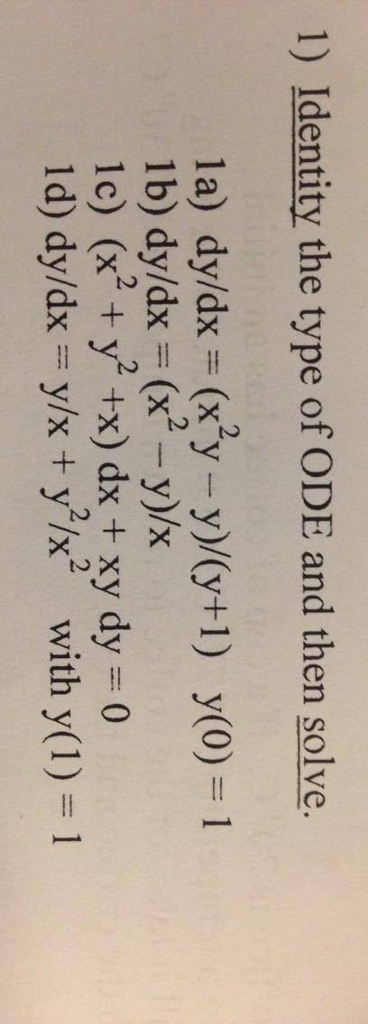 1) Identity the type of ODE and then solve.
1a) dy/dx = (x²y – y)/(y+1) y(0) = 1
1b) dy/dx = (x² – y)/x
1c) (x² + y² +x) dx + xy dy = 0
1d) dy/dx = y/x + y²/x² with y(1) = 1